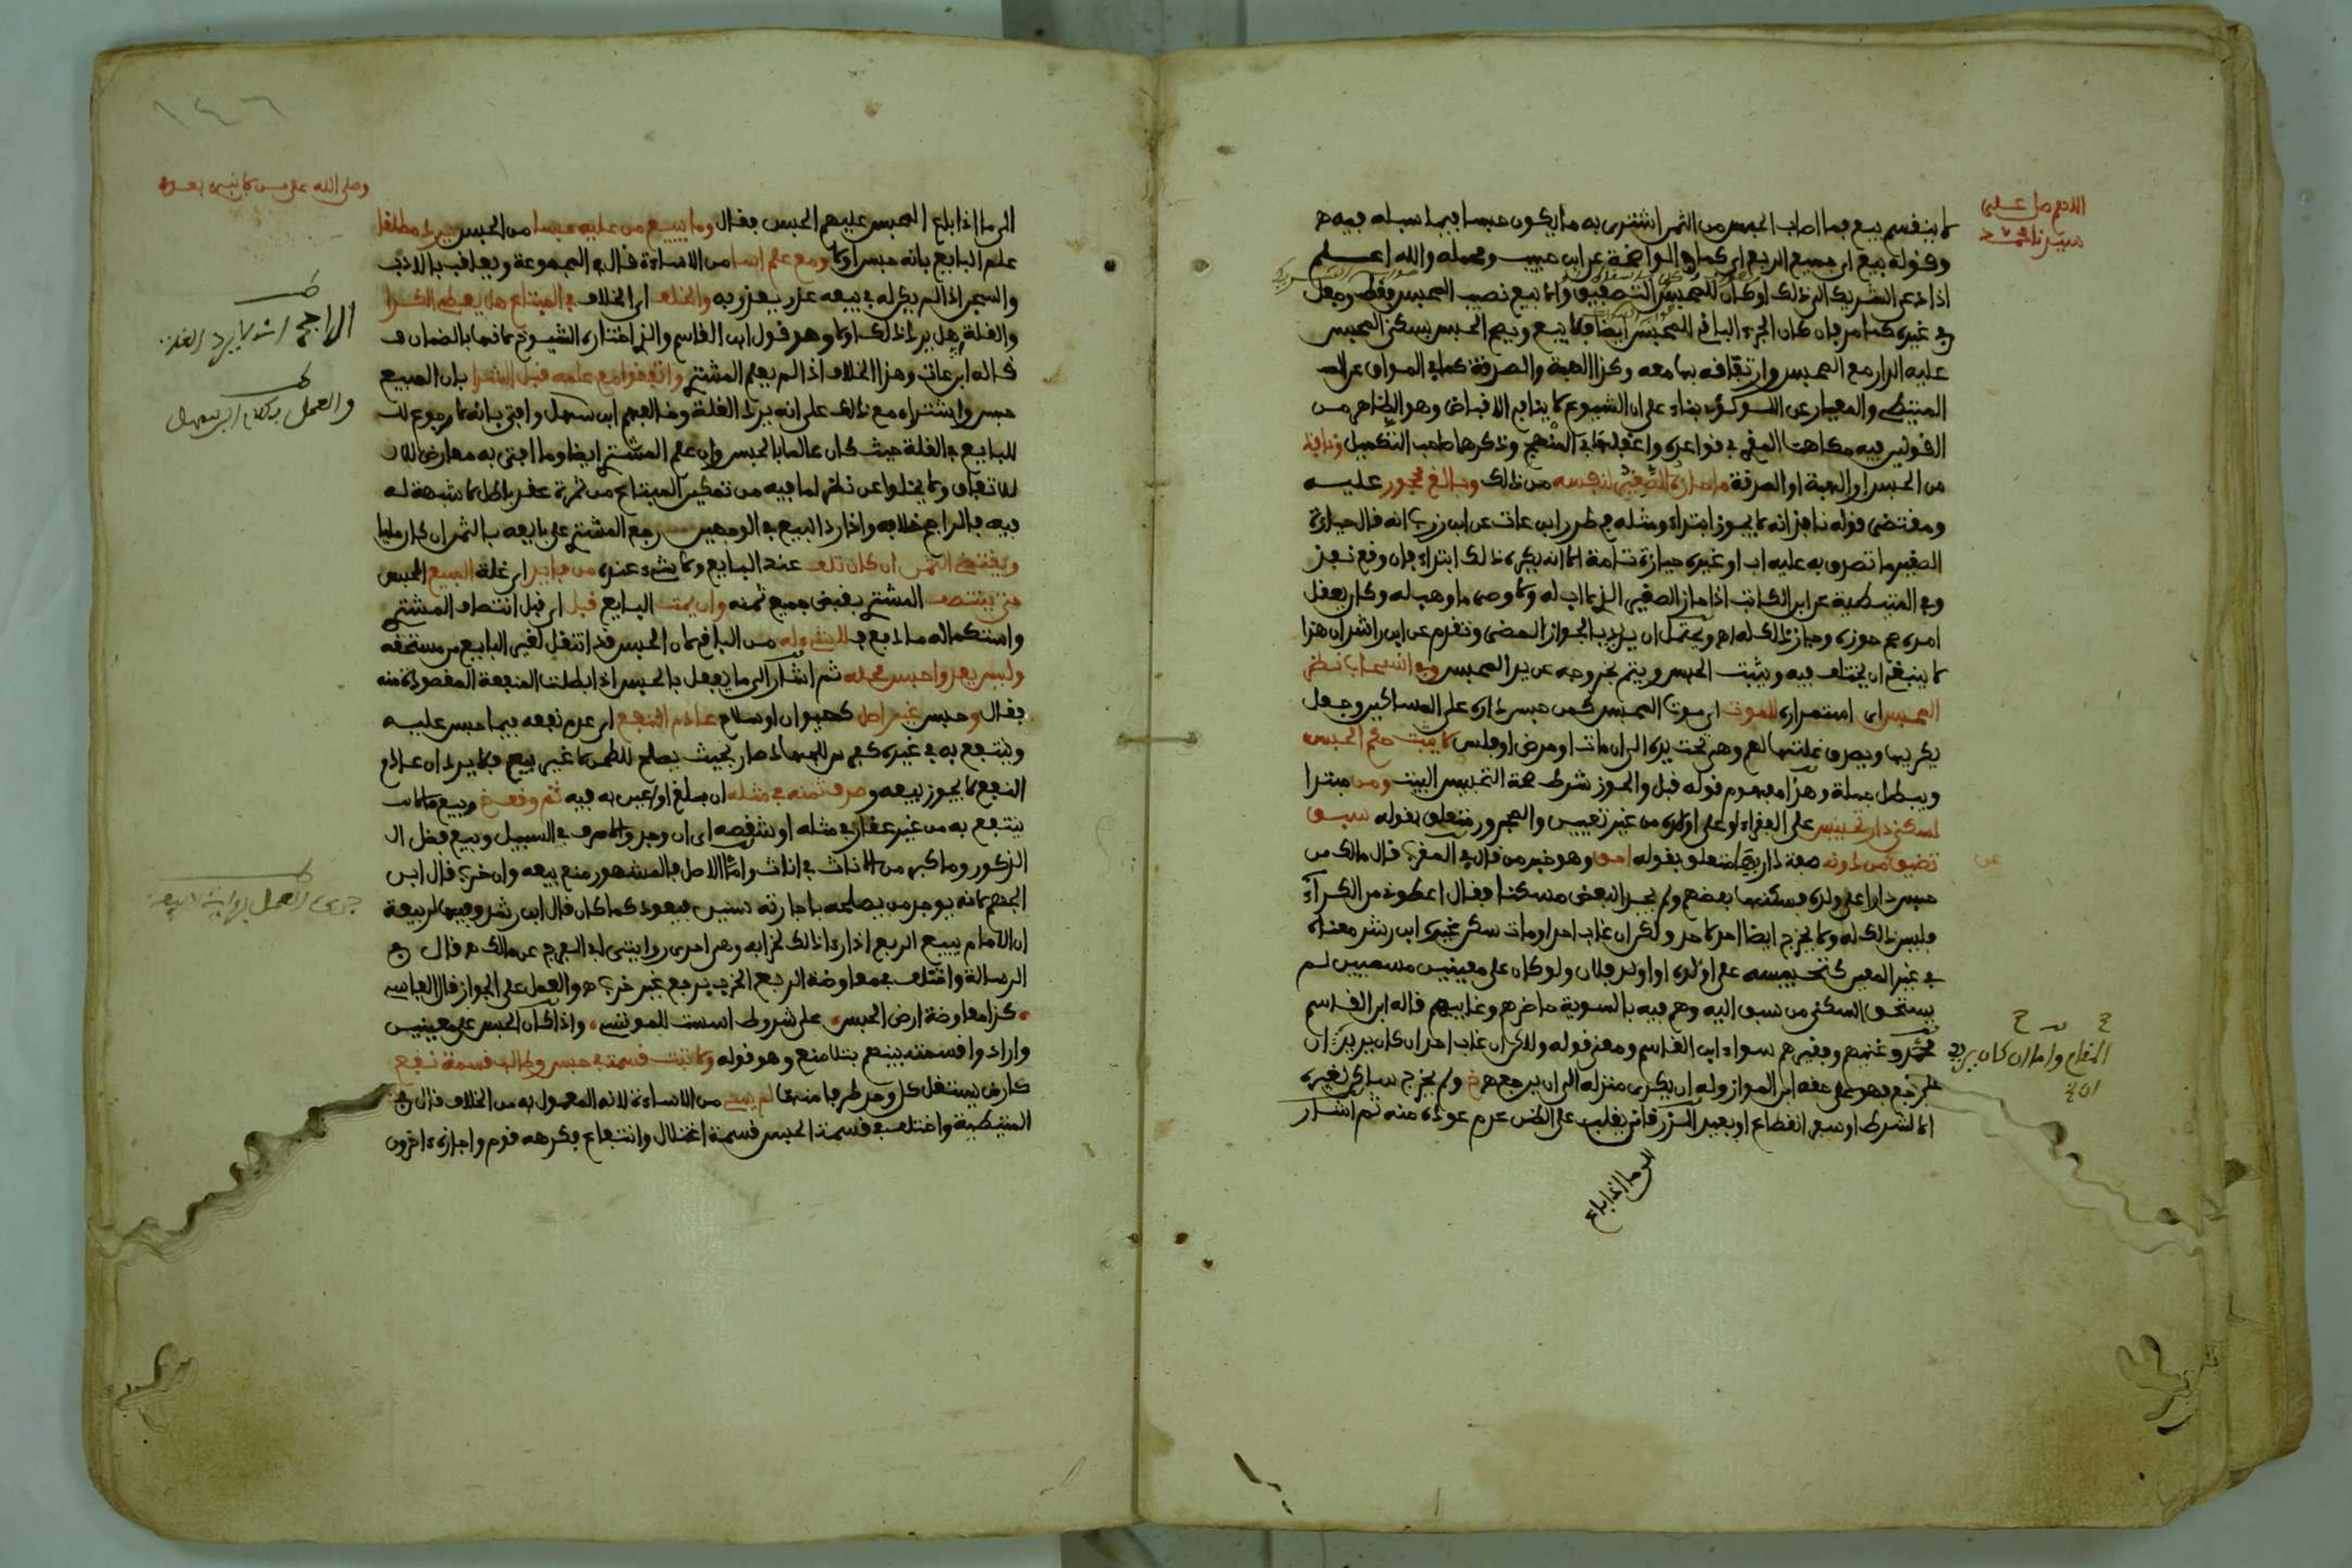 اللهم صل على
سيدنا محمد
لا ينقسم بيع فما اصاب الحبس من الثمن اشترى به ما يكون حبسا فيما سبله فيه ه
وقوله بيع اي جميع الربع اي كما في الواضحة عن ابن حبيب ومحمله والله اعلم
اذا دعى الشريك الى ذلك او كان للمحبس
في غيره كما مر فان كان الجزء الباقي للمحبس ايضا فلا يبيع ويصح الحبس بسكنى المحبس
عليه الدار مع المحبس وارتفاقه بها معه وكذا الهبة والصدقة كما في المواق عن
المتيطي والمعيار عن بناء على ان الشيوع لا ينافي الاقباض وهو الظاهر من
القولين فيه في قواعده واغفلها في المنهج وذكرها صاحب التكميل ونافذ
من الحبس او الهبة او الصدقة ما حازه الصغير لنفسه من ذلك وبالغ محجور عليه
ومقتضى قوله نافذ انه لا يجوز ابتداء ومثله في طرر ابن عات عن ابن زرب انه قال حيازة
الصغير ما تصدق به عليه اب او غيره حيازة تامة الا انه يكره ذلك ابتداء فان وقع نفذ
وفي المتيطية عن ابن الكاتب اذا حاز الصغير الذي لا اب له ولا وصي ما وهب له وكان يعقل
امره صح حوزه وجاز ذلك له اه ويحتمل ان يريد بالجواز المضي وتقدم عن ابن راشد ان هذا
لا ينبغي ان يختلف فيه ويثبت الحبس ويتم بخروجه عن يد المحبس وفي انسحاب نظر
المحبس اي استمراره للموت اي موت المحبس كمن حبس داره على المساكين وجعل
يكريها ويصرف غلتها لهم وهي تحت يده الى ان مات او مرض او فلس لا يثبت حكم الحبس
ويبطل جملة وهذا مفهوم قوله قبل والحوز شرط صحة التحبيس البيت ومن مبتدا
لسكنى دار تحبيس على الفقراء او على اولاده من غير تعيين والمجرور متعلق بقوله سبق
تضيق من دونه صفة دار متعلق بقوله احق وهو خبر من قال في المقرب قال مالك من
حبس دارا على ولده فسكنها بعضهم ولم يجد البعض مسكنا فقال اعطوني من الكراء
فليس ذلك له ولا يخرج ايضا احد لاحد ولكن ان غاب احد او مات سكن غيره ابن رشد معناه
في غير المعين كتحبيسه على اولاده او اولاد فلان ولو كان على معينين مسميين لم
يستحق السكنى من سبق اليه وهم فيه بالسوية حاضرهم وغايبهم قاله ابن القاسم
محمد وغنيهم وفقيرهم سواء ابن القاسم ومعنى قوله ولاكن ان غاب احد ان كان يريد ان
يرجع فهو على حقه ابن المواز وله ان يكري منزله الى ان يرجع ه خ ولم يخرج ساكن لغيره
الا لشرط او سفر انقطاع او بعيد الزرقاني يغلب على الظن عدم عوده منه ثم اشار
المقام واما ان كان يريد
ان
الى ما اذا باع
وصلى الله على من لا نبي بعده
الى ما اذا باع المحبس عليهم الحبس فقال وما يبيع من عليه حبسا من الحبس يرد مطلقا
علم البايع بانه حبس او لا ومع علم اسا من الاساءة قال في المجموعة ويعاقب بالادب
والسجن اذا لم يكن له في بيعه عذر يعذر به والخلف اي الخلاف في المبتاع هل يعطي الكرا
والغلة اي هل يرد ذلك او لا وهو قول ابن القاسم والذي اختاره الشيوخ لانها بالضمان
قاله ابن عات وهذا الخلاف اذا لم يعلم المشتري واتفقوا مع علمه قبل الشرا بان المبيع
حبس واشتراه مع ذلك على انه يرد الغلة وخالفهم ابن سهل وافتى بانه لا رجوع
للبايع في الغلة حيث كان عالما بالحبس وان علم المشتري ايضا وما افتى به معارض
للاتفاق ولا يخلو عن نظر لما فيه من تمكين المبتاع من ثمرة عقد باطل لا شبهة له
فيه فالراجح خلافه واذا رد البيع في الوجهين رجع المشتري على بايعه بالثمن ان كان مليا
ويقتضى الثمن ان كان تلف عند البايع ولا شيء عنده من فايد اي غلة المبيع الحبس
حتى ينتصف المشتري بقبض جميع ثمنه وان يمت البايع قبل اي قبل انتصاف المشتري
واستكماله ما دفع فلا شيء له من الباقي لان الحبس قد انتقل لغير البايع من مستحقه
وليس يعدو احبس محله ثم اشار الى ما يفعل بالحبس اذا بطلت المنفعة المقصودة منه
فقال وحبس غير اصل كحيوان او سلاح عادم النفع اي عدم نفعه فيما حبس عليه
وينتفع به في غيره كفرس للجهاد صار بحيث يصلح للطحن لا غير بيع فلا يرد ان عادم
النفع لا يجوز بيعه وصرف ثمنه في مثله ان بلغ او اعين به فيه ثم وقف خ وبيع ما لا
ينتفع به من غير عقار في مثله او شقصه اي ان وجد والا صرف في السبيل وبيع فضل
الذكور وما كبر من الاناث في اناث واما الاصل فالمشهور منع بيعه وان خرب قال ابن
الجهم لانه يوجد من يصلحه باجارته سنين فيعود كما كان قال ابن رشد وفيها لربيعة
ان الامام يبيع الربع اذا رءا ذلك لخرابه وهي احدى روايتي ابي الفرج عن مالك ه قال في
الرسالة واختلف في معاوضة الربع الخرب بربع غير خرب ه والعمل على الجواز قال الفاسي
كذا معاوضة ارض الحبس على شروط اسست للمونس واذا كان الحبس على معينين
وارادوا قسمته بينهم بتلا منع وهو قوله ولا تبت قسمة في حبس وطالب قسمة نفع
كارض يستغل كل وحد طرفا منها لم يسئ من الاساءة لانه المعمول به من الخلاف قال في
المتيطية واختلف في قسمة الحبس قسمة اغتلال وانتفاع فكرهه قوم واجازه اخرون
الراجح انه لا يرد الغلة
والعمل بكلام ابن سهل
جرى العمل برواية ربيعة
١٤٦